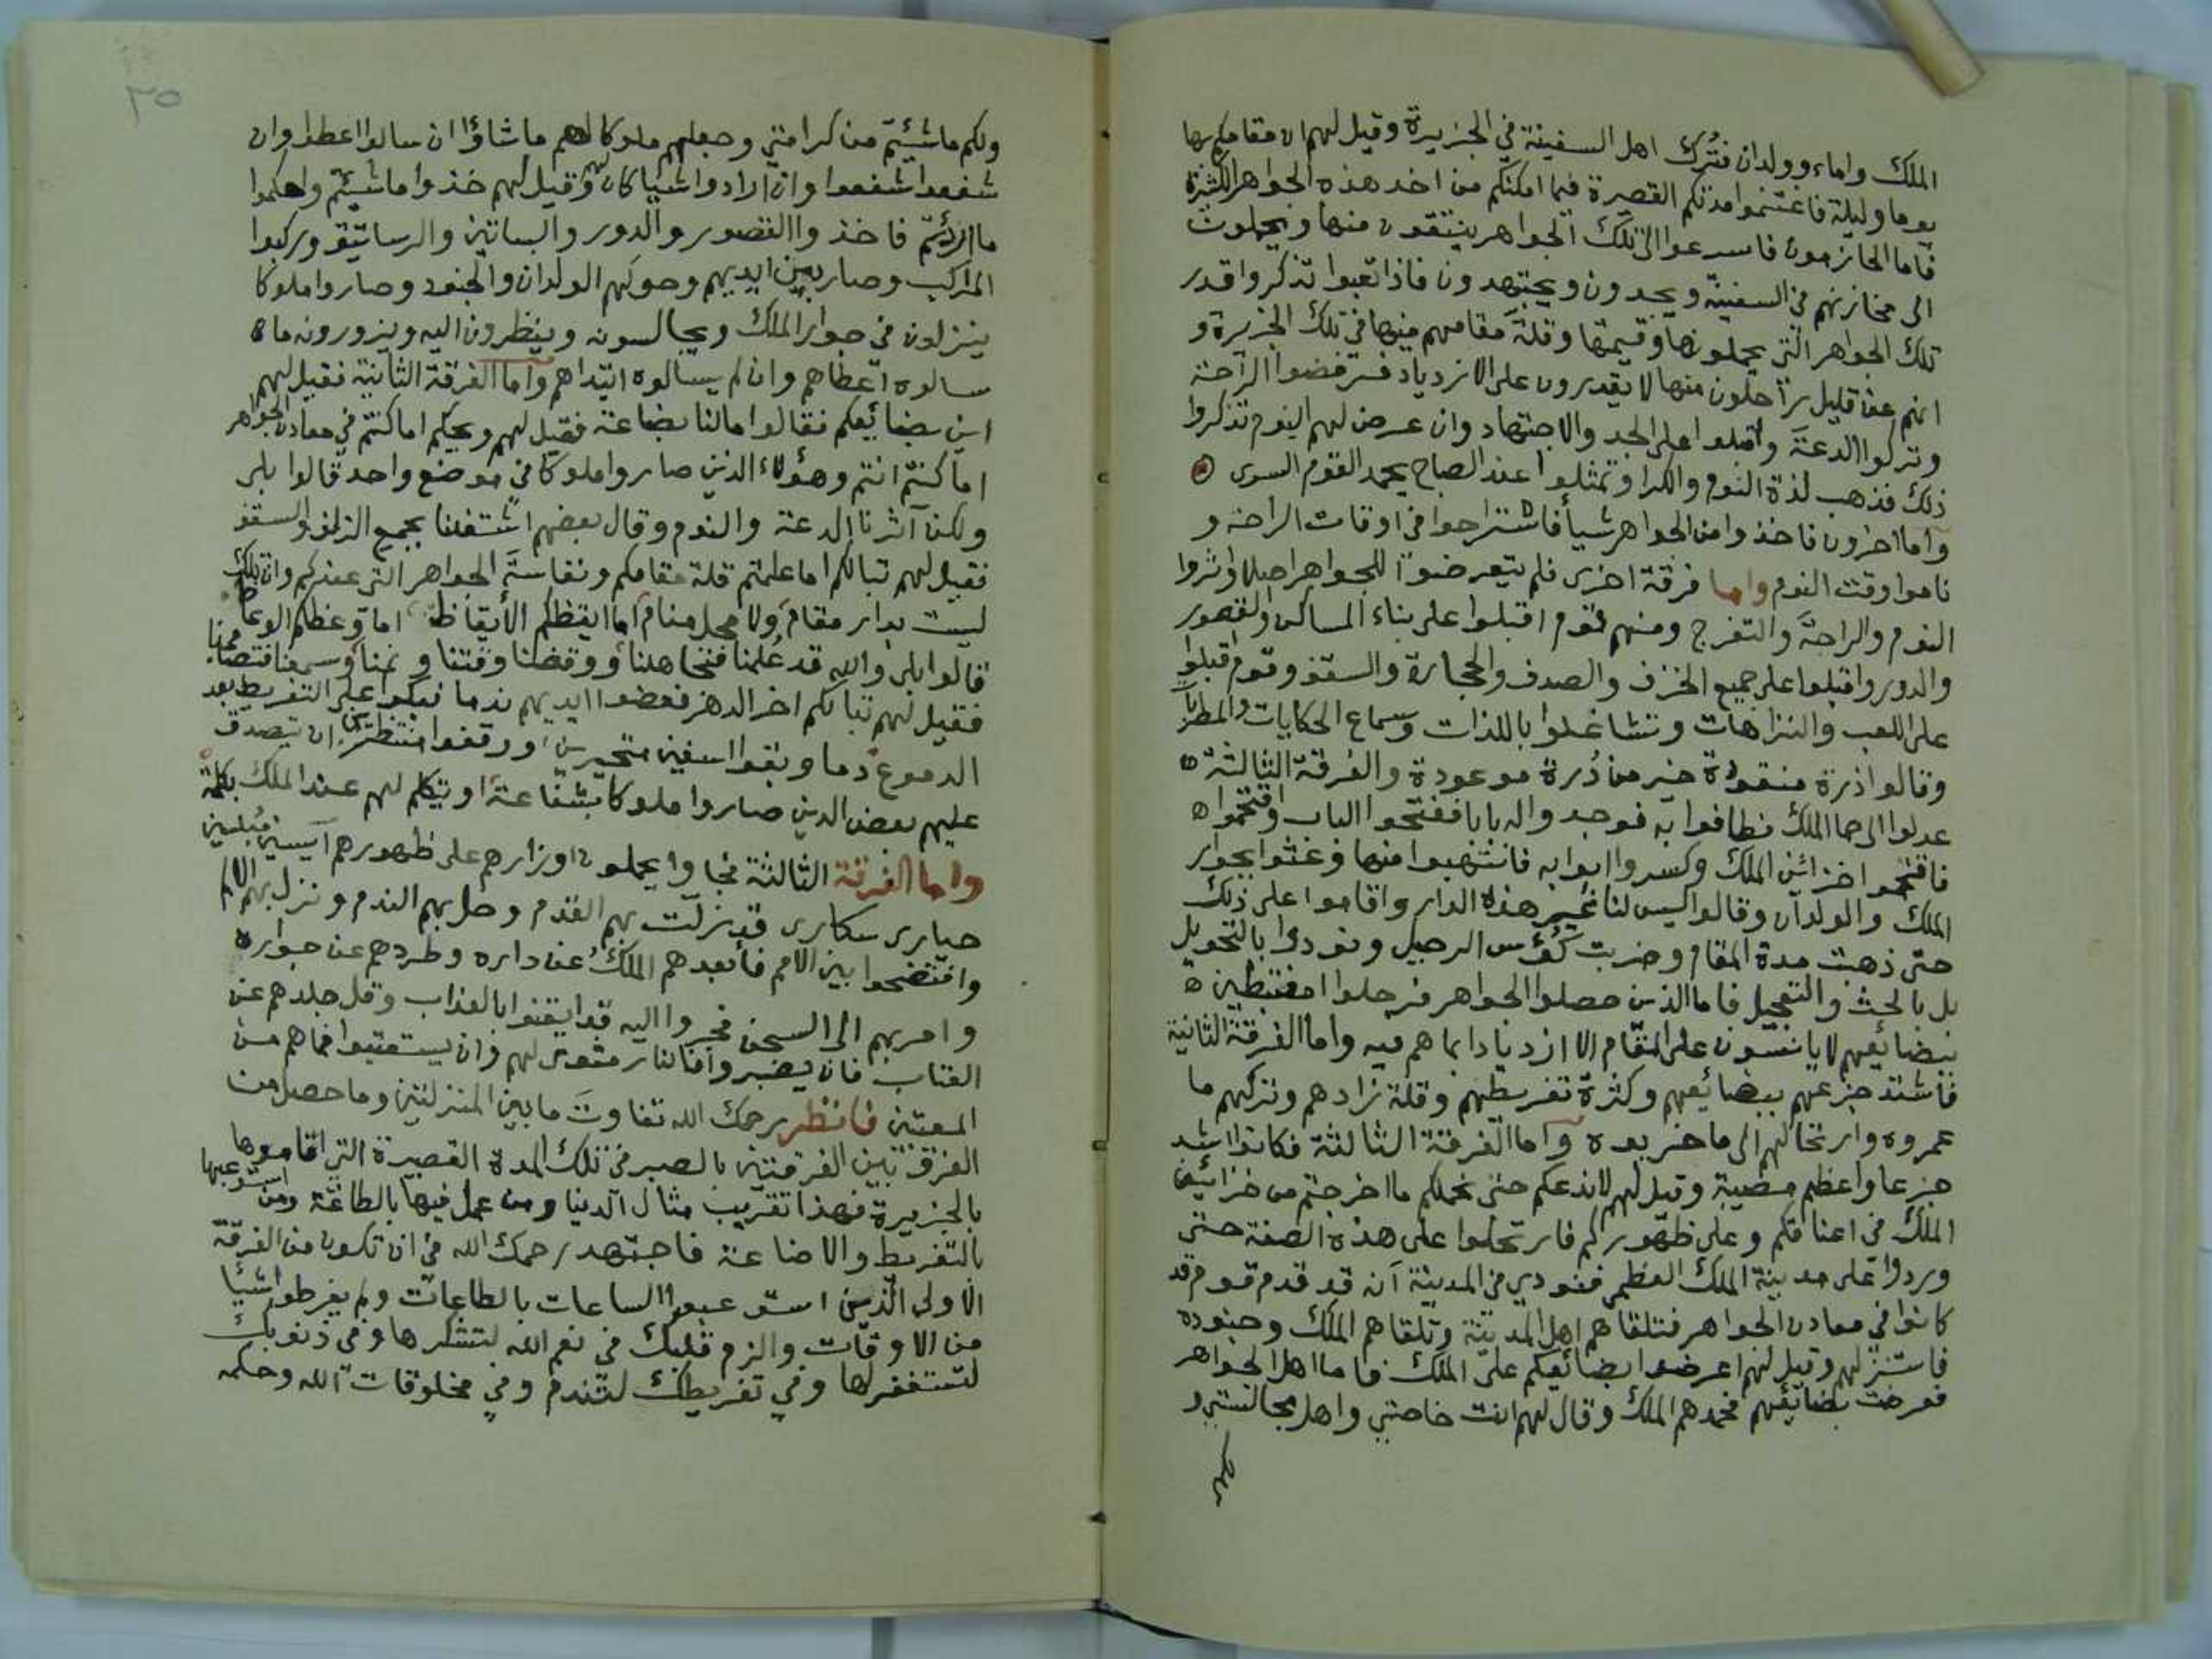 الملك واماء وولدان فنُترك اهل السفينة في الجزيرة وقيل لهم ان مقامكم بها
يوما وليلة فاغتنموا مدتكم القصيرة فيما امكنكم من اخد هذه الجواهر الكثيرة
فاما الحازمون فاسرعوا الى تلك الجواهر ينتقون منها ويحملون
الى مخازنهم في السفينة ويجدون ويجتهدون فاذا تعبوا تذكروا قدر
تلك الجواهر التي يحملونها وقيمتها وقلة مقامهم منها في تلك الجزيرة و
انهم عن قليل راحلون منها لا يقدرون على الازدياد فرفضوا الراحة
وتركوا الدعة واقبلوا على الجد والاجتهاد وان عرض لهم النوم تذكروا
ذلك فذهب لذة النوم والكرا وتمثلوا عند الصباح يحمد القوم السرى
وأما اخرون فاخذوا من الجواهر شيأ فاستراحوا في اوقات الراحة و
ناموا وقت النوم واما فرقة اخرى فلم يتعرضوا للجواهر اصلا واثروا
النوم والراحة والتفرج ومنهم قوم اقبلوا على بناء المساكن والقصور
والدور واقبلوا على جميع الخزف والصدف والحجارة والسقف وقوم اقبلوا
على اللعب والنزاهات وتشاغلوا باللذات وسماع الحكايات والمطربات
وقالوا ذرة منقودة خير من دُرة موعودة والفرقة الثالثة
عدلوا الى حما الملك فطافوا به فوجدوا له بابا ففتحوا الباب واقتحموا
فاقتحموا خزائن الملك وكسروا ابوابه فانتهبوا منها وعثوا بجوار
الملك والولدان وقالوا ليس لنا غير هذه الدار واقاموا على ذلك
حتى ذهبت مدة المقام وضربت كؤس الرحيل ونودوا بالتحويل
بل بالحث والتعجيل فاما الذين حصلوا الجواهر فرحلوا مغتبطين
ببضائعهم لا يانسون على المقام الا ازديادا بما هم فيه واما الفرقة الثانية
فاشتد جزعهم ببضائعهم وكثرة تفريطهم وقلة زادهم وتركهم ما
عمروه وارتحالهم الى ما خربوه واما الفرقة الثالثة فكانوا اشد
جزعا واعظم مصيبة وقيل لهم لا ندعكم حتى نحملكم ما اخرجتم من خزائن
الملك في اعناقكم وعلى ظهوركم فارتحلوا على هذه الصفة حتى
وردوا على مدينة الملك العظمى فنودي في المدينة ان قد قدم قوم قد
كانوا في معادن الجواهر فتلقاهم اهل المدينة وتلقاهم الملك وجنوده
فاستنزلهم وقيل لهم اعرضوا بضائعكم على الملك فاما اهل الجواهر
فعرضت بضائعهم فحمدهم الملك وقال لهم انت خاصتي واهل مجالستي و
ولكم ما شئتم من كرامتي وجعلهم ملوكا لهم ما شاؤا ان سالوا اعطوا وان
شفعوا شفعوا وان ارادوا شيا كان لهم وقيل لهم خذوا ما شئتم واحكموا
ما اردتم فاخذوا القصور والدور والبساتين والرساتيق وركبوا
المراكب وصار بين ايديهم وحولهم الولدان والجنود وصاروا ملوكا
ينزلون في جوار الملك ويجالسونه وينظرون اليه ويزورونه ما
سالوه اعطاهم وان لم يسالوه ابتداهم واما الفرقة الثانية فقيل لهم
اين بضائعكم فقالوا ما لنا بضاعة فقيل لهم ويحكم اما كنتم في معادن الجواهر
اما كنتم انتم وهؤلاء الذين صاروا ملوكا في موضع واحد قالوا بلى
ولكن آثرنا الدعة والنوم وقال بعضهم اشتغلنا بجمع الزلف والسقف
فقيل لهم تبا لكم اما علمتم قلة مقامكم ونفاسة الجواهر التي عندكم وان تلك
ليست بدار مقام ولا محل منام اما ايقظكم الأيقاظ اما وعظكم الوعاظ
قالوا بلى والله قد عُلمنا فتجاهلنا ووقضنا وقتنا ونمنا وسمعنا فتصاممنا
فقيل لهم تبا لكم اخر الدهر فعضوا ايديهم ندما فبكوا على التفريط بعد
الدموع دما وبقوا اسفين متحيرين ووقفوا منتظرين ان يتصدق
عليهم بعض الدين صاروا ملوكا بشفاعة او يتكلم لهم عند الملك بكلمة
واما الفرقة الثالثة فجاوا يحملون اوزارهم على ظهورهم آيسين مُبلسين
حيارى سكارى قد زلت بهم القدم وحل بهم الندم ونزل بهم الالم
وافتضحوا بين الامم فأبعدهم الملك عن داره وطردهم عن جواره
وامر بهم الى السجن فجروا اليه قد ايقنوا بالعذاب وقل جلدهم عن
العتاب فان يصبروا فالنار مثوى لهم وان يستعتبوا فما هم من
المعتبين فانظر رحمك الله تفاوت ما بين المنزلتين وما حصل من
الفرق بين الفرقتين بالصبر في تلك المدة القصيرة التي اقاموها
بالجزيرة فهذا تقريب مثال الدنيا ومن عمل فيها بالطاعة ومن استوعبها
بالتفريط والاضاعة فاجتهد رحمك الله في ان تكون من الفرقة
الاولى الذين استوعبوا الساعات بالطاعات ولم يفرطوا شيأ
من الاوقات والزم قلبك في نعم الله لتشكرها وفي ذنوبك
لتستغفر لها وفي تفريطك لتندم وفي مخلوقات الله وحكمه
٣٥